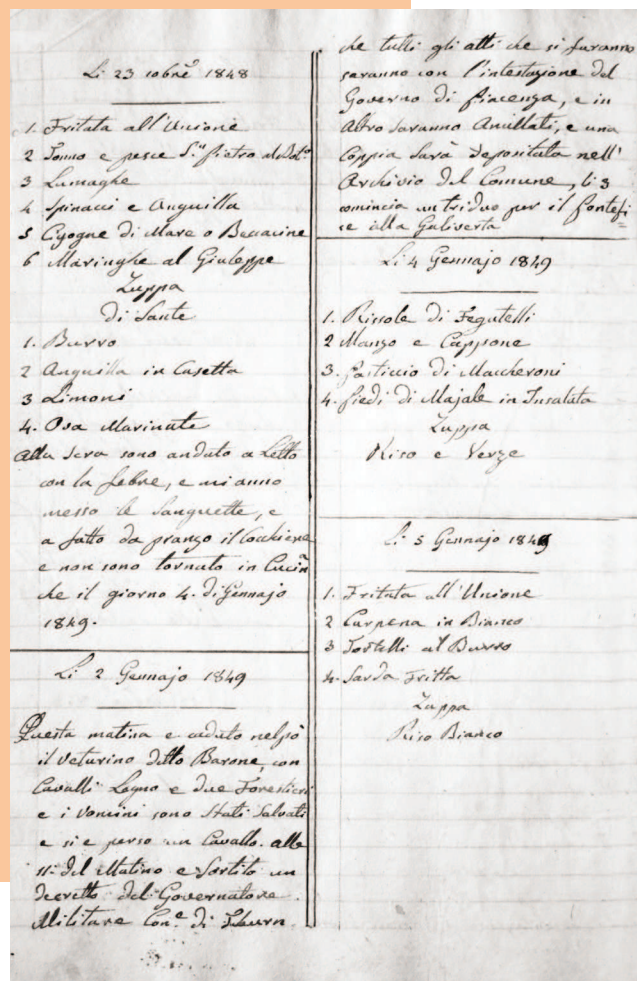 Li 23 10bre 1848
1. Fritata all'Unione
2 Tonno e pesce S.n Pietro
3 Lumaghe
4 Spinacci e Anguilla
5 Cigogne di Mare o Beccacine
6 Maringhe al Giuleppe
Zuppa
di Sante
1. Burro
2 Anguilla in Casetta
3 Limoni
4. Ova Marinate
alla sera sono andato a Letto
con la febre, e mi anno
messo le Sanguette, e
a fatto da pranzo il Cochiere
e non sono tornato in Cucin
che il giorno 4. di Gennajo
1849.
Li 2 Gennajo 1849
Questa matina e caduto nel pò
il Veturino detto Barone, con
Cavalli Legno e due Forestieri
e i Uomini sono Stati Salvati
e si e perso un Cavallo. alle
11. del Matino e Sortito un
decretto del Governatore
Militare Con.e di
che tutti gli atti che si faranno
saranno con l'intestazione del
Governo di Piacenza, e in
Altro saranno Anullati, e una
Coppia Sarà depositata nell'
Archivio del Comune, li 3
comincia un triduo per il Pontefi
ce alla
Li 4 Gennajo 1849
1. Rissole di Fegatelli
2 Manzo e Cappone
3. Pasticcio di Maccheroni
4. Piedi di Majale in Insalata
Zuppa
Riso e Verze
Li 5 Gennajo 1849
1. Fritata all'Unione
2 Carpena in Bianco
3 Tortelli al Burro
4. Sarda Fritta
Zuppa
Riso Bianco